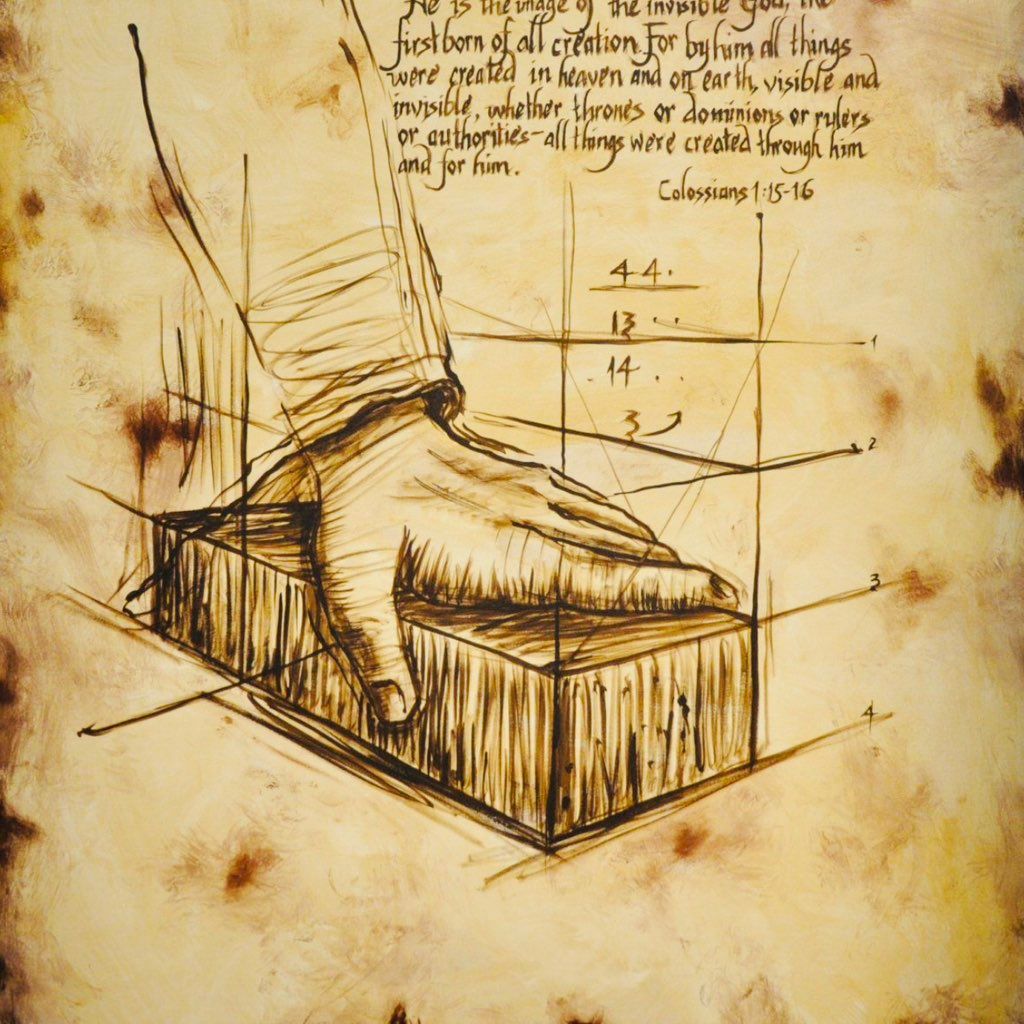 He is the image of the invisible God, the
firstborn of all creation. For by him all things
were created in heaven and on earth, visible and
invisible, whether thrones or dominions or rulers
or authorities-all things were created through him
and for him.
Colossians 1:15-16
44.
13 ..
1
.14 ..
3
2
3
4